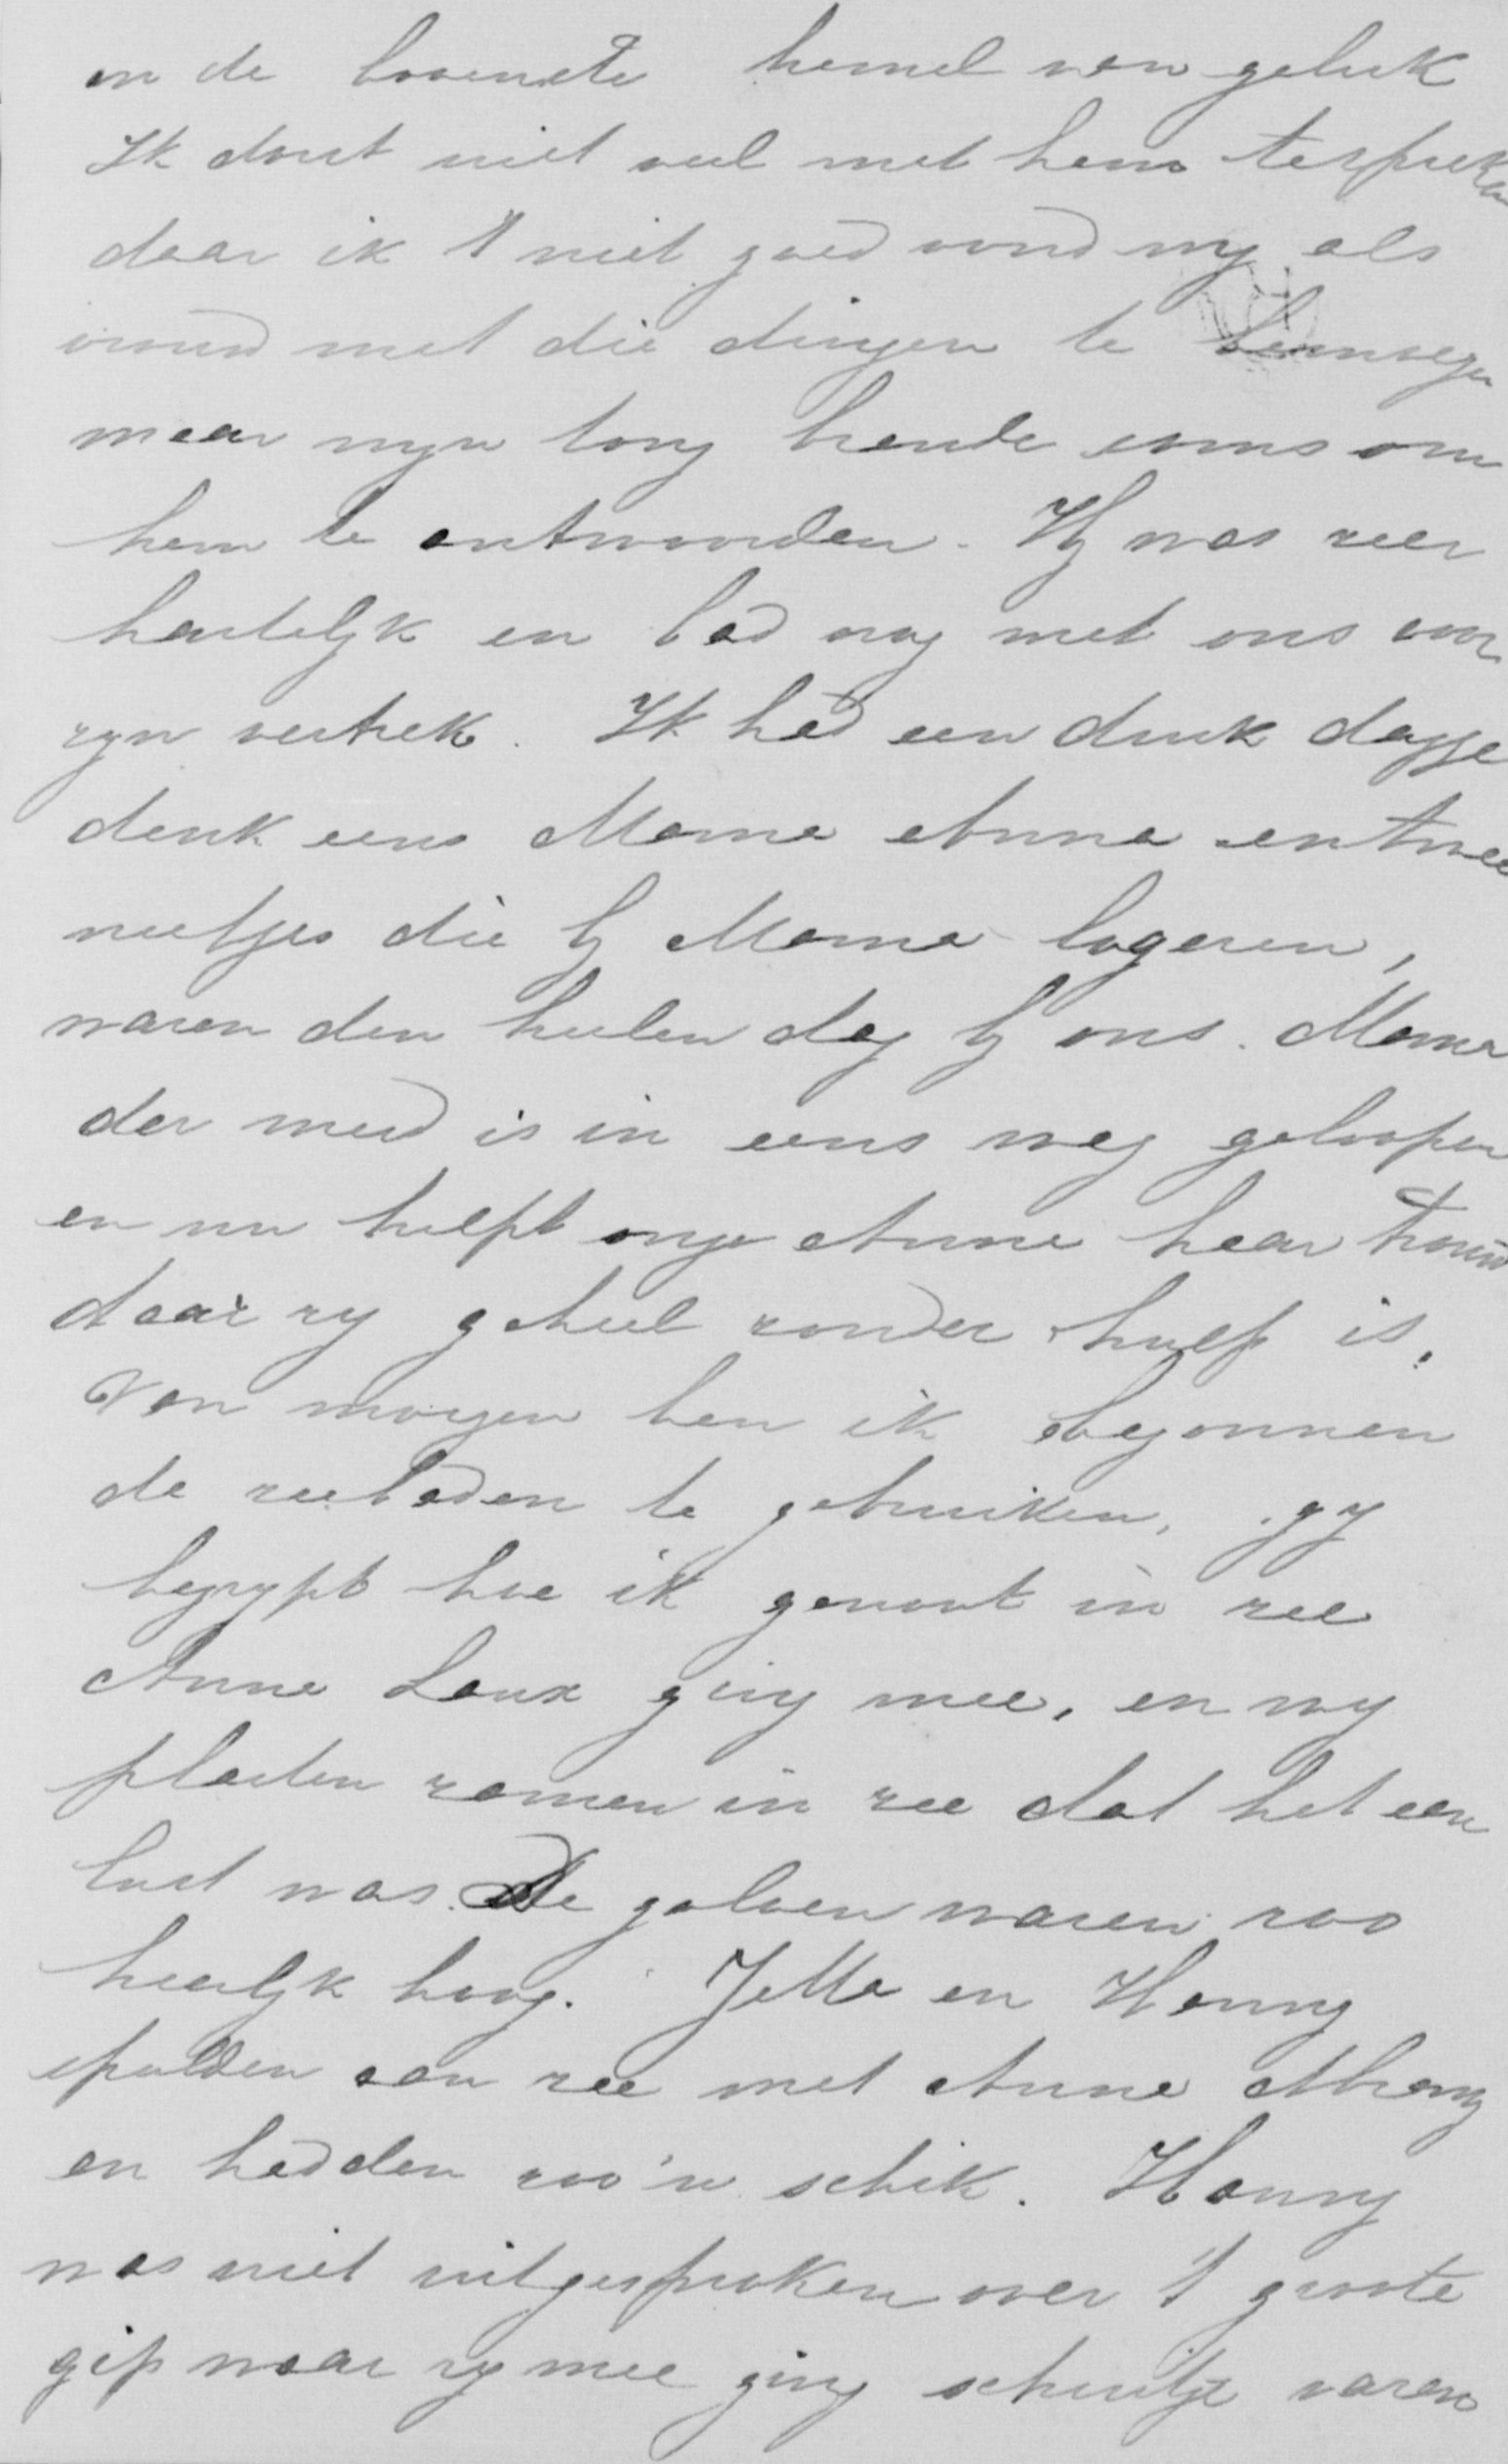 in de bovenste hemel van geluk
Ik dorst niet veel met hem te spreken
daar ik 't niet goed vond my als
vrouw met die dingen te bemoeyen
maar myn tong brande soms om
hem te antwoorden. Hy was zeer
hartelyk en bad nog met ons voor
zyn vertrek. Ik had een druk dagje
denk eens Mama Anna en twee
neefjes die by Mama logeren,
waren den heelen dag by ons. Mama
der meid is in eens weg geloopen
en nu helpt onze Anna haar trouw
daar zy geheel zonder hulp is.
Van morgen ben ik begonnen
de zeebaden te gebruiken, gy
begrypt hoe ik genoot in zee
Anna Laux ging mee, en wy
plasten zamen in zee dat het een
lust was. De golven waren zoo
heerlyk hoog. Jetta en Hanny
speelden aan zee met Anna
en hadden zoo'n schik. Hanny
was niet uitgesproken over 't groote
gip waar zy mee ging schuitje varen